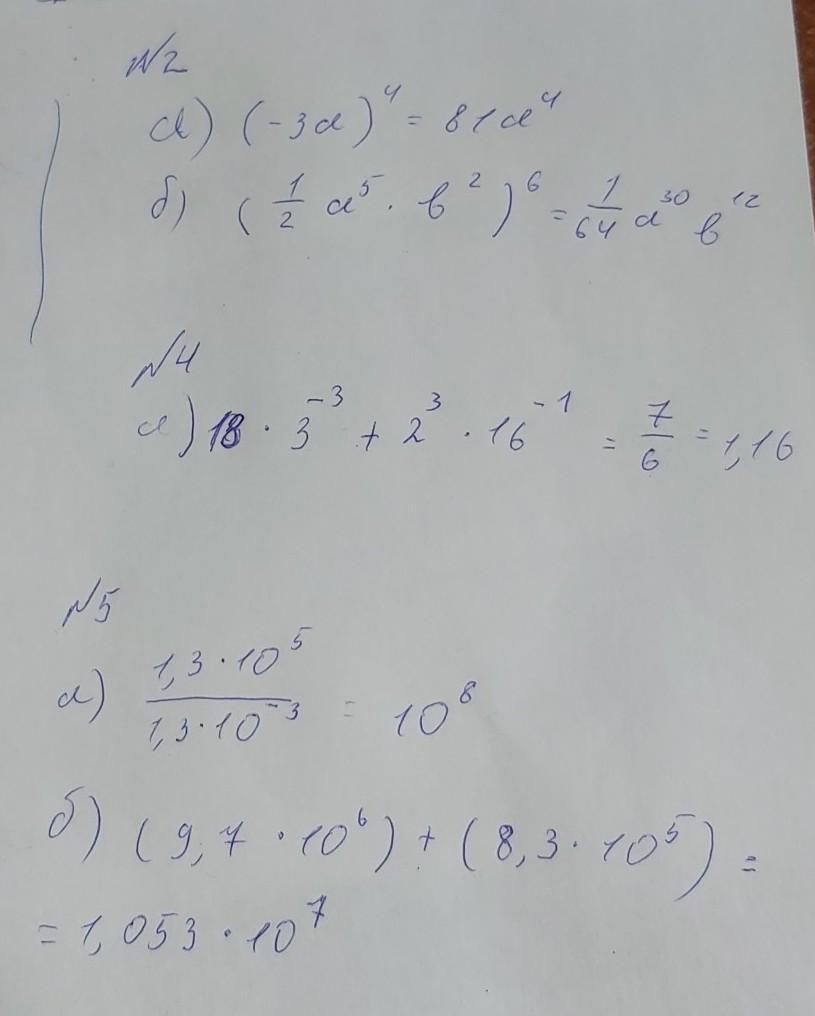 №2
а) (-3a)⁴ = 81a⁴
б) (1/2 a⁵ · b²)⁶ = 1/64 a³⁰ b¹²
№4
а) 18 · 3⁻³ + 2³ · 16⁻¹ = 7/6 = 1,16
№5
а) 1,3 · 10⁵ / 1,3 · 10⁻³ = 10⁸
б) (9,7 · 10⁶) + (8,3 · 10⁵) =
= 1,053 · 10⁷